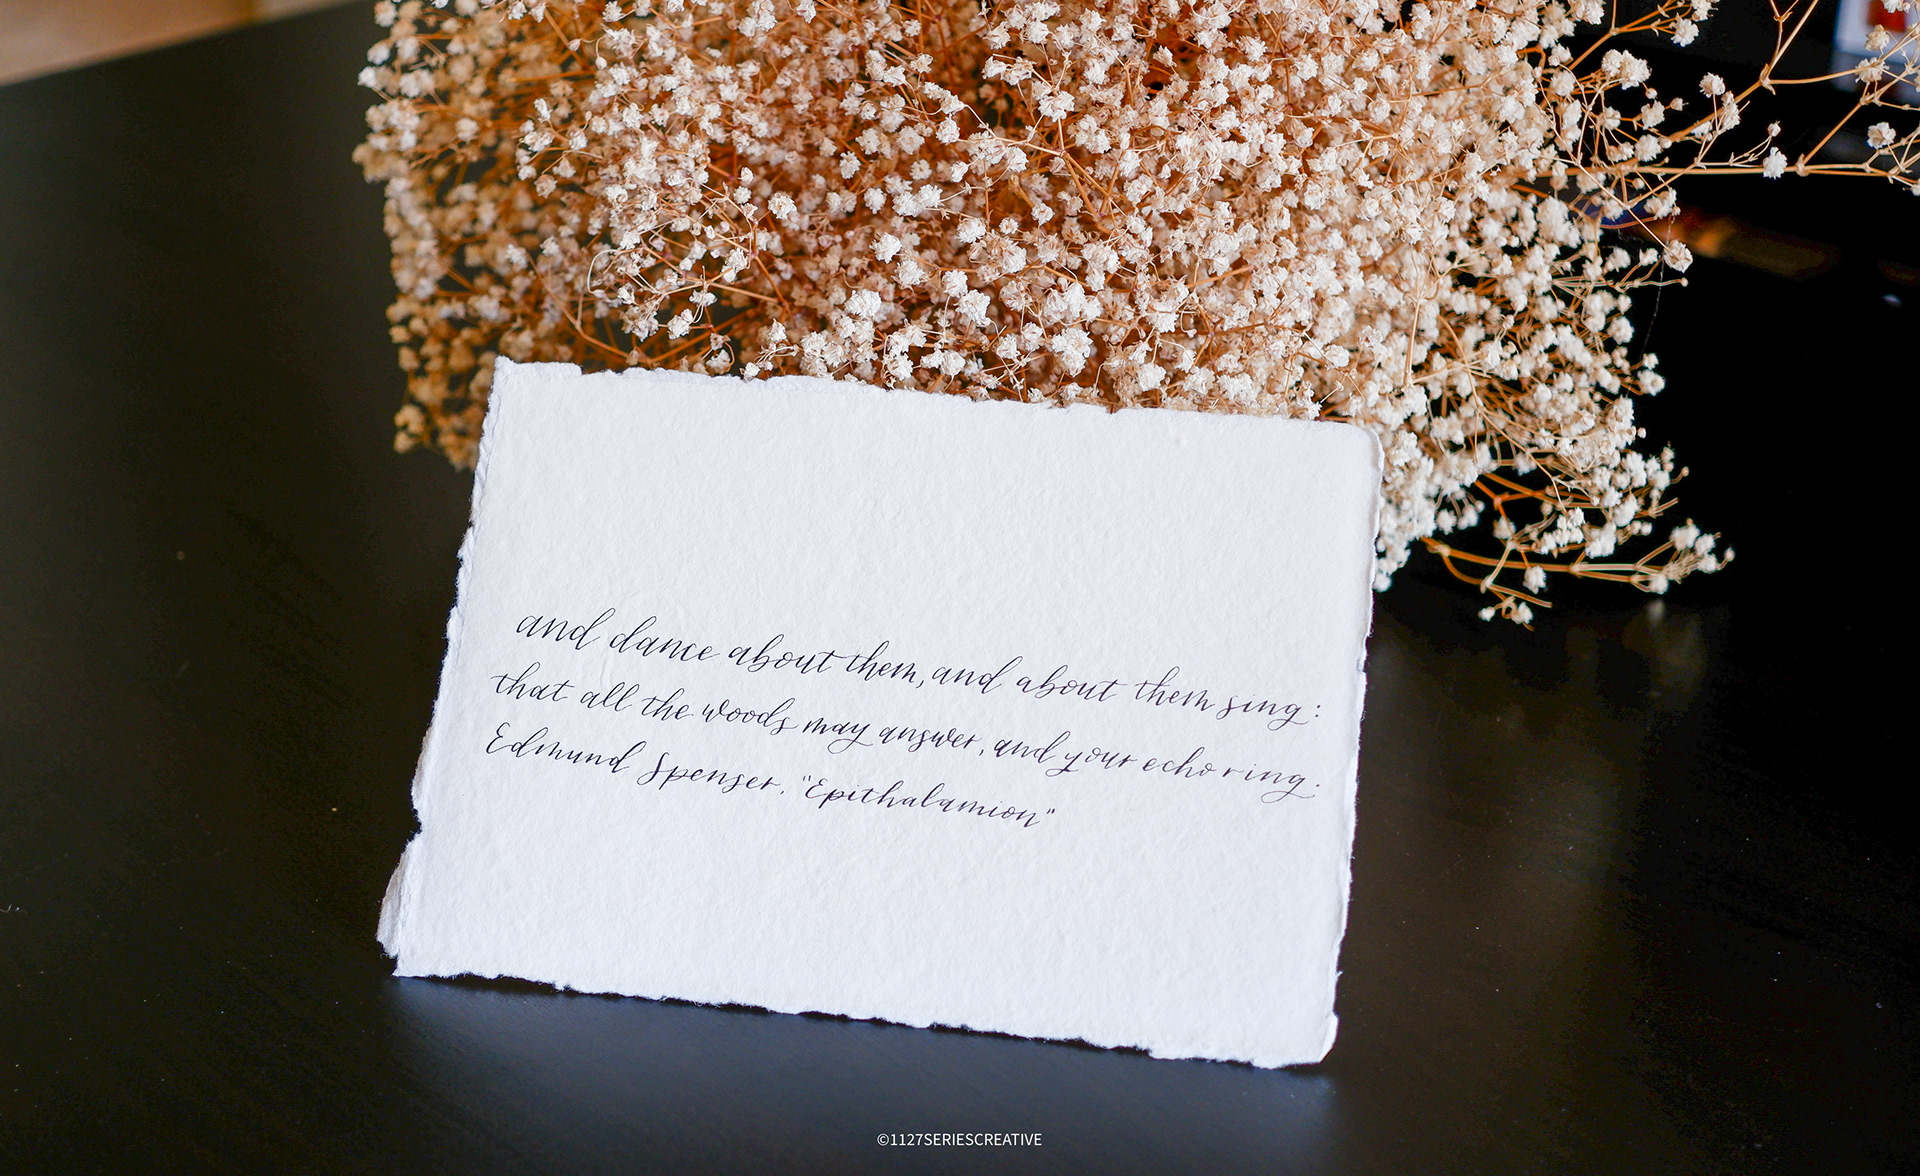 and dance about them, and about them sing:
that all the woods may answer, and your echo ring:
Edmund Spenser, "Epithalamion"
©1127SERIESCREATIVE